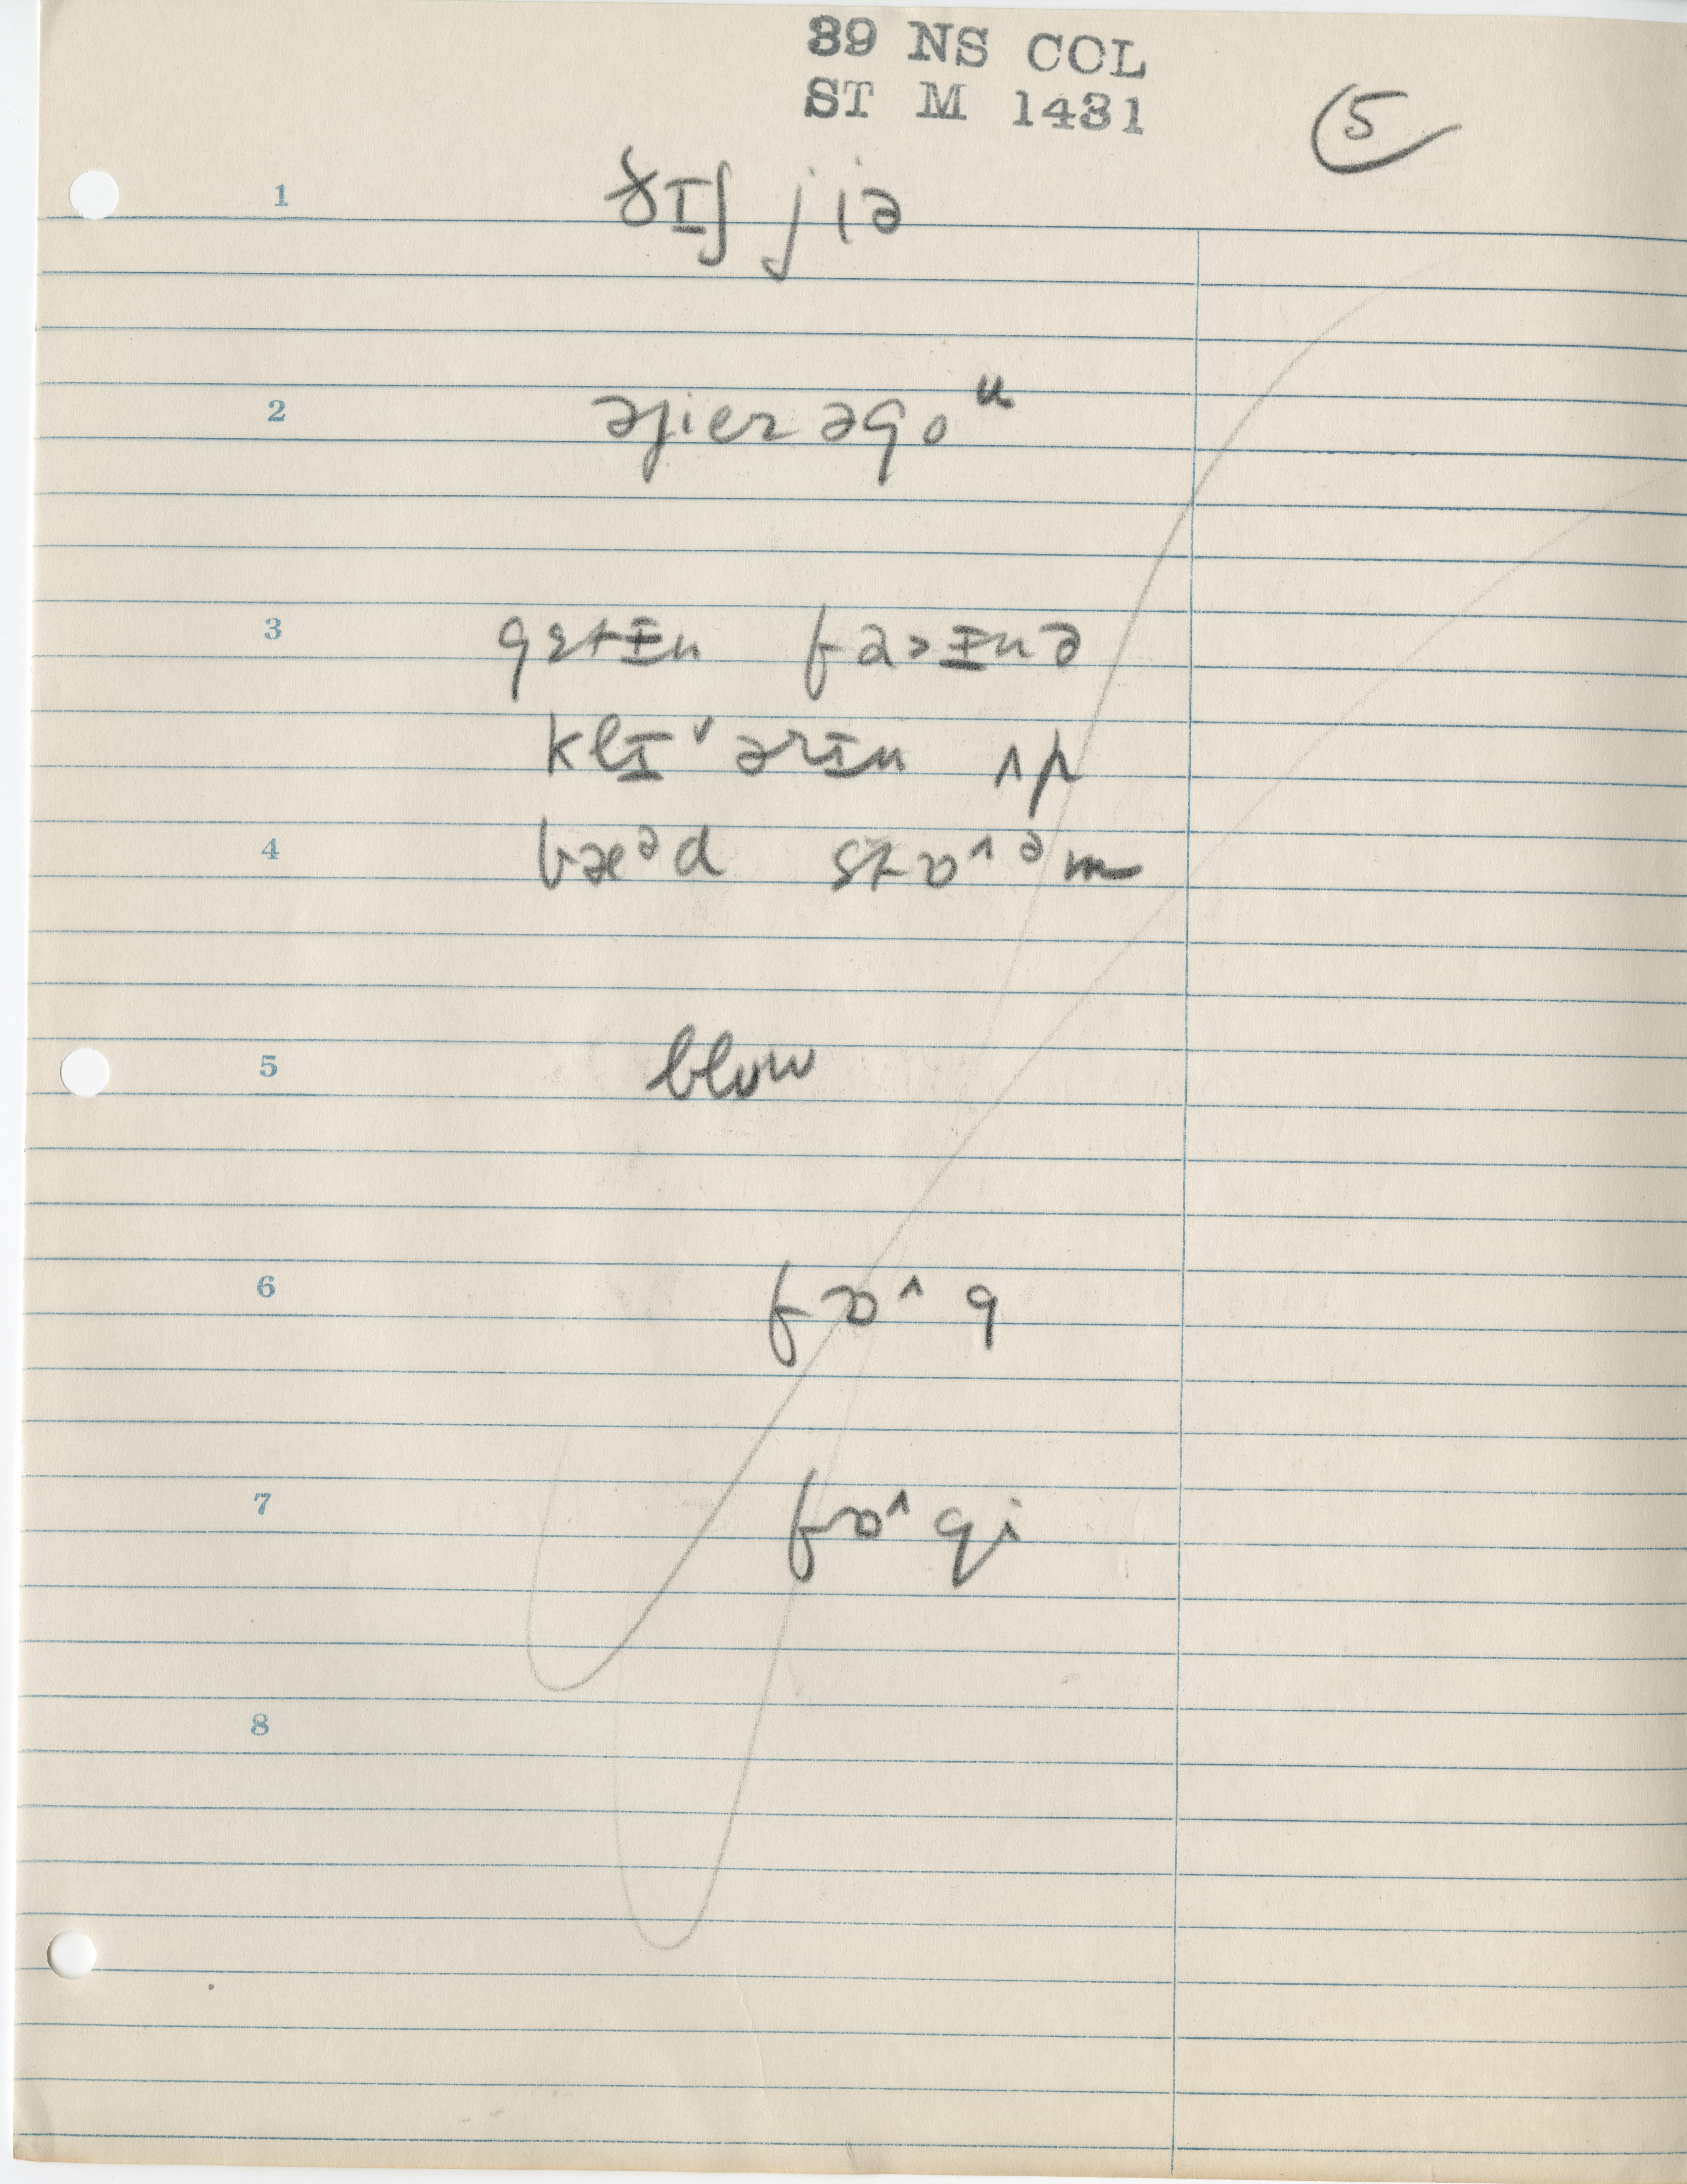 89 NS COL
ST M 1431
5
1 ðɪʃ jiə
2 əjiɚ əgoᵘ
3 gɛtɪn faɪɪnə
klɪˇ ərɪn ʌp
4 bæᵊd stɒ^ᵊm
5 blow
6 fɒ^g
7 fɒ^gi
8